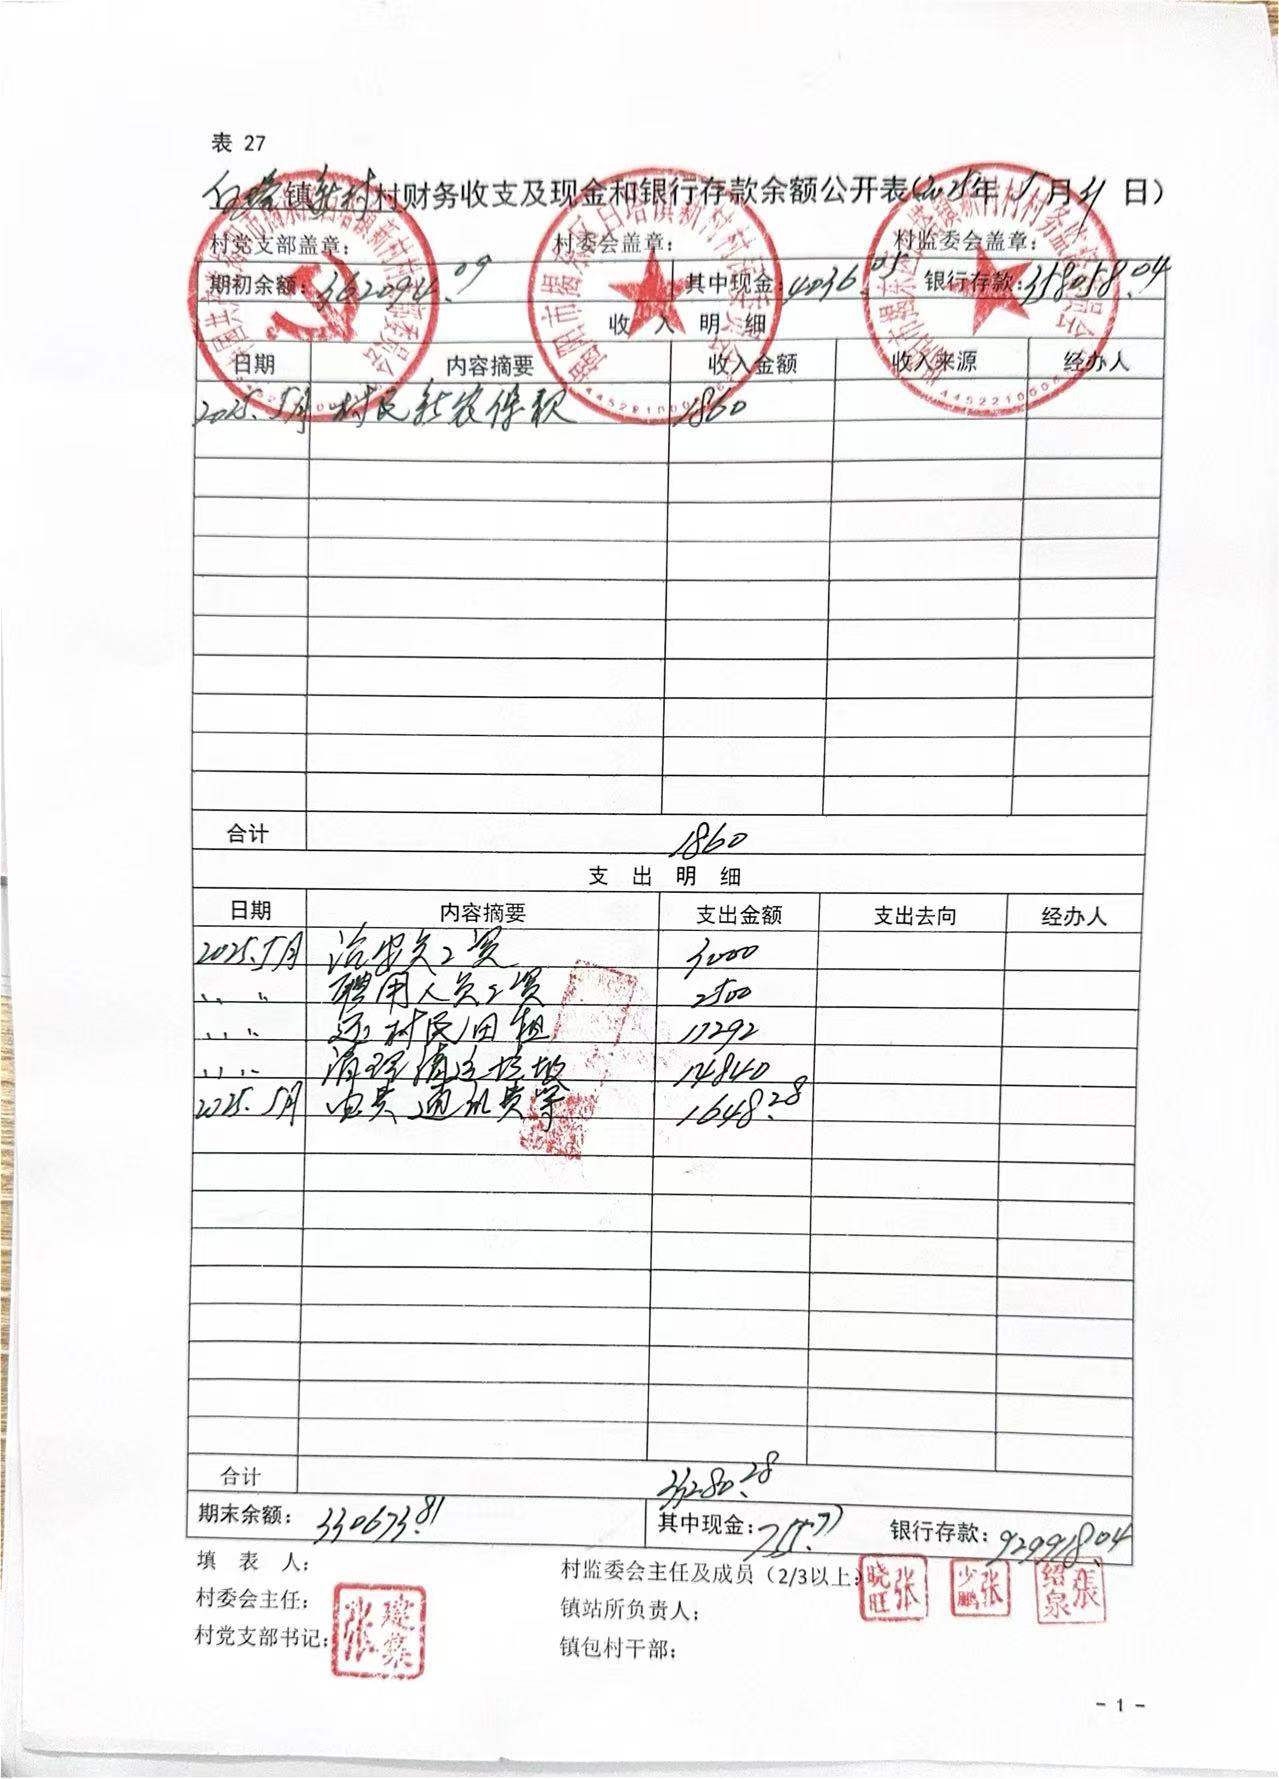 表 27
白塔镇新村村财务收支及现金和银行存款余额公开表(2025年 5月31日)
村党支部盖章: 村委会盖章: 村监委会盖章:
期初余额: 362094.09 其中现金: 4036.05 银行存款: 358058.04
收 入 明 细
日期 内容摘要 收入金额 收入来源 经办人
2025.5月 村民新农保款 1860
合计 1860
支 出 明 细
日期 内容摘要 支出金额 支出去向 经办人
2025.5月 治安员工资 3000
〃 〃 聘用人员工资 2500
〃 〃 还村民田租 11292
〃 〃 清理清运垃圾 14840
2025.5月 电费通讯费等 1648.28
合计 33280.28
期末余额: 330673.81 其中现金: 755.77 银行存款: 329918.04
填 表 人: 村监委会主任及成员(2/3以上): 张晓旺 张少鹏 張绍泉
村委会主任: 镇站所负责人:
村党支部书记: 镇包村干部:
- 1 -